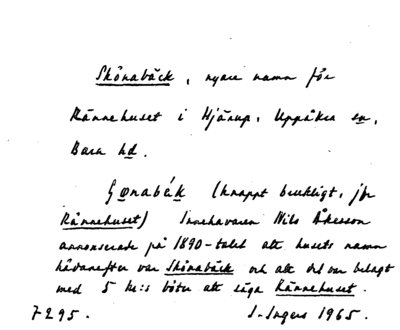 Skönabäck, nyare namn för
Kännehuset i Hjärup, Uppåkra sn,
Bara hd.
(knappt brukligt, jfr
Kännehuset) Innehavaren Nils Åkesson
annonserade på 1890-talet att husets namn
hädanefter var Skönabäck och att det var belagt
med 5 kr:s böter att säga Kännehuset.
7295. I. Ingers 1965.